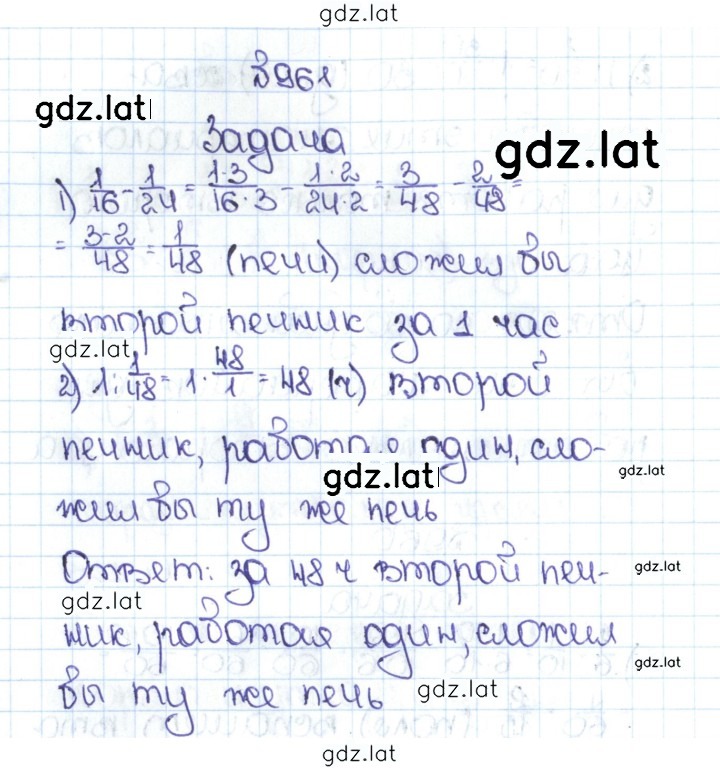 gdz.lat
№961
gdz.lat
Задача
gdz.lat
1) 1/16 - 1/24 = 1·3/16·3 - 1·2/24·2 = 3/48 - 2/48 =
= 3-2/48 = 1/48 (печи) сложил бы
второй печник за 1 час
gdz.lat
2) 1 : 1/48 = 1 · 48/1 = 48 (ч) второй
печник, работая один, сло-
gdz.lat
gdz.lat
жил бы ту же печь
Ответ: за 48 ч второй печ-
gdz.lat
gdz.lat
ник, работая один, сложил
gdz.lat
бы ту же печь
gdz.lat
gdz.lat